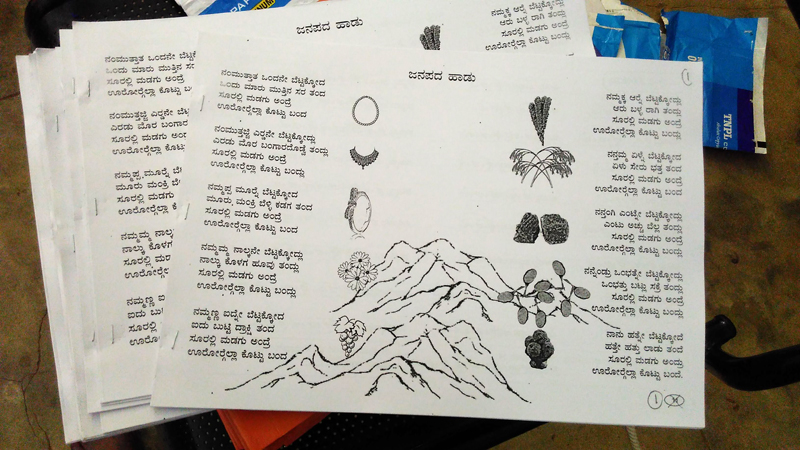 ಜನಪದ ಹಾಡು
೧
ನಂಮುತ್ತಾತ ಒಂದನೇ ಬೆಟ್ಟಕ್ಕೋದ
ಒಂದು ಮಾರು ಮುತ್ತಿನ ಸರ ತಂದ
ಸೂರಲ್ಲಿ ಮಡಗು ಅಂದ್ರೆ
ಊರೋರ್‍ಗೆಲ್ಲಾ ಕೊಟ್ಟು ಬಂದ
ನಂಮುತ್ತಜ್ಜಿ ಎರ್‍ಡನೇ ಬೆಟ್ಟಕ್ಕೋದ್ಲು
ಎರಡು ಮೊರ ಬಂಗಾರದೊಡ್ವೆ ತಂದ್ಲು
ಸೂರಲ್ಲಿ ಮಡಗು ಅಂದ್ರೆ
ಊರೋರ್‍ಗೆಲ್ಲಾ ಕೊಟ್ಟು ಬಂದ್ಲು
ನಮ್ಮಪ್ಪ ಮೂರ್‍ನೆ ಬೆಟ್ಟಕ್ಕೋದ
ಮೂರು ಮಂಕ್ರಿ ಬೆಳ್ಳಿ ಕಡಗ ತಂದ
ಸೂರಲ್ಲಿ ಮಡಗು ಅಂದ್ರೆ
ಊರೋರ್‍ಗೆಲ್ಲಾ ಕೊಟ್ಟು ಬಂದ
ನಮ್ಮಮ್ಮ ನಾಲ್ಕನೇ ಬೆಟ್ಟಕ್ಕೋದ್ಲು
ನಾಲ್ಕು ಕೊಳಗ ಹೂವು ತಂದ್ಲು
ಸೂರಲ್ಲಿ ಮಡಗು ಅಂದ್ರೆ
ಊರೋರ್‍ಗೆಲ್ಲಾ ಕೊಟ್ಟು ಬಂದ್ಲು
ನಮ್ಮಣ್ಣ ಐದ್ನೇ ಬೆಟ್ಟಕ್ಕೋದ
ಐದು ಬುಟ್ಟಿ ದ್ರಾಕ್ಷಿ ತಂದ
ಸೂರಲ್ಲಿ ಮಡಗು ಅಂದ್ರೆ
ಊರೋರ್‍ಗೆಲ್ಲಾ ಕೊಟ್ಟು ಬಂದ
ನಮ್ಮಕ್ಕ ಆರ್‍ನೆ ಬೆಟ್ಟಕ್ಕೋದ್ಲು
ಆರು ಬಳ್ಳ ರಾಗಿ ತಂದ್ಲು
ಸೂರಲ್ಲಿ ಮಡಗು ಅಂದ್ರೆ
ಊರೋರ್‍ಗೆಲ್ಲಾ ಕೊಟ್ಟು ಬಂದ್ಲು
ನನ್ತಮ್ಮ ಏಳ್ನೆ ಬೆಟ್ಟಕ್ಕೋದ
ಏಳು ಸೇರು ಭತ್ತ ತಂದ
ಸೂರಲ್ಲಿ ಮಡಗು ಅಂದ್ರೆ
ಊರೋರ್‍ಗೆಲ್ಲಾ ಕೊಟ್ಟು ಬಂದ
ನನ್ತಂಗಿ ಎಂಟ್ನೇ ಬೆಟ್ಟಕ್ಕೋದ್ಲು
ಎಂಟು ಅಚ್ಚು ಬೆಲ್ಲ ತಂದ್ಲು
ಸೂರಲ್ಲಿ ಮಡಗು ಅಂದ್ರೆ
ಊರೋರ್‍ಗೆಲ್ಲಾ ಕೊಟ್ಟು ಬಂದ್ಲು
ನನ್ನೆಂಡ್ರು ಒಂಭತ್ನೇ ಬೆಟ್ಟಕ್ಕೋದ್ಲು
ಒಂಭತ್ತು ಬಟ್ಲು ಸಕ್ರೆ ತಂದ್ಲು
ಸೂರಲ್ಲಿ ಮಡಗು ಅಂದ್ರೆ
ಊರೋರ್‍ಗೆಲ್ಲಾ ಕೊಟ್ಟು ಬಂದ್ಲು
ನಾನು ಹತ್ನೇ ಬೆಟ್ಟಕ್ಕೋದೆ
ಹತ್ತೇ ಹತ್ತು ಲಾಡು ತಂದೆ
ಸೂರಲ್ಲಿ ಮಡಗು ಅಂದ್ರು
ಊರೋರ್‍ಗೆಲ್ಲಾ ಕೊಟ್ಟು ಬಂದೆ.
೧
ಜನಪದ ಹಾಡು
TNPL